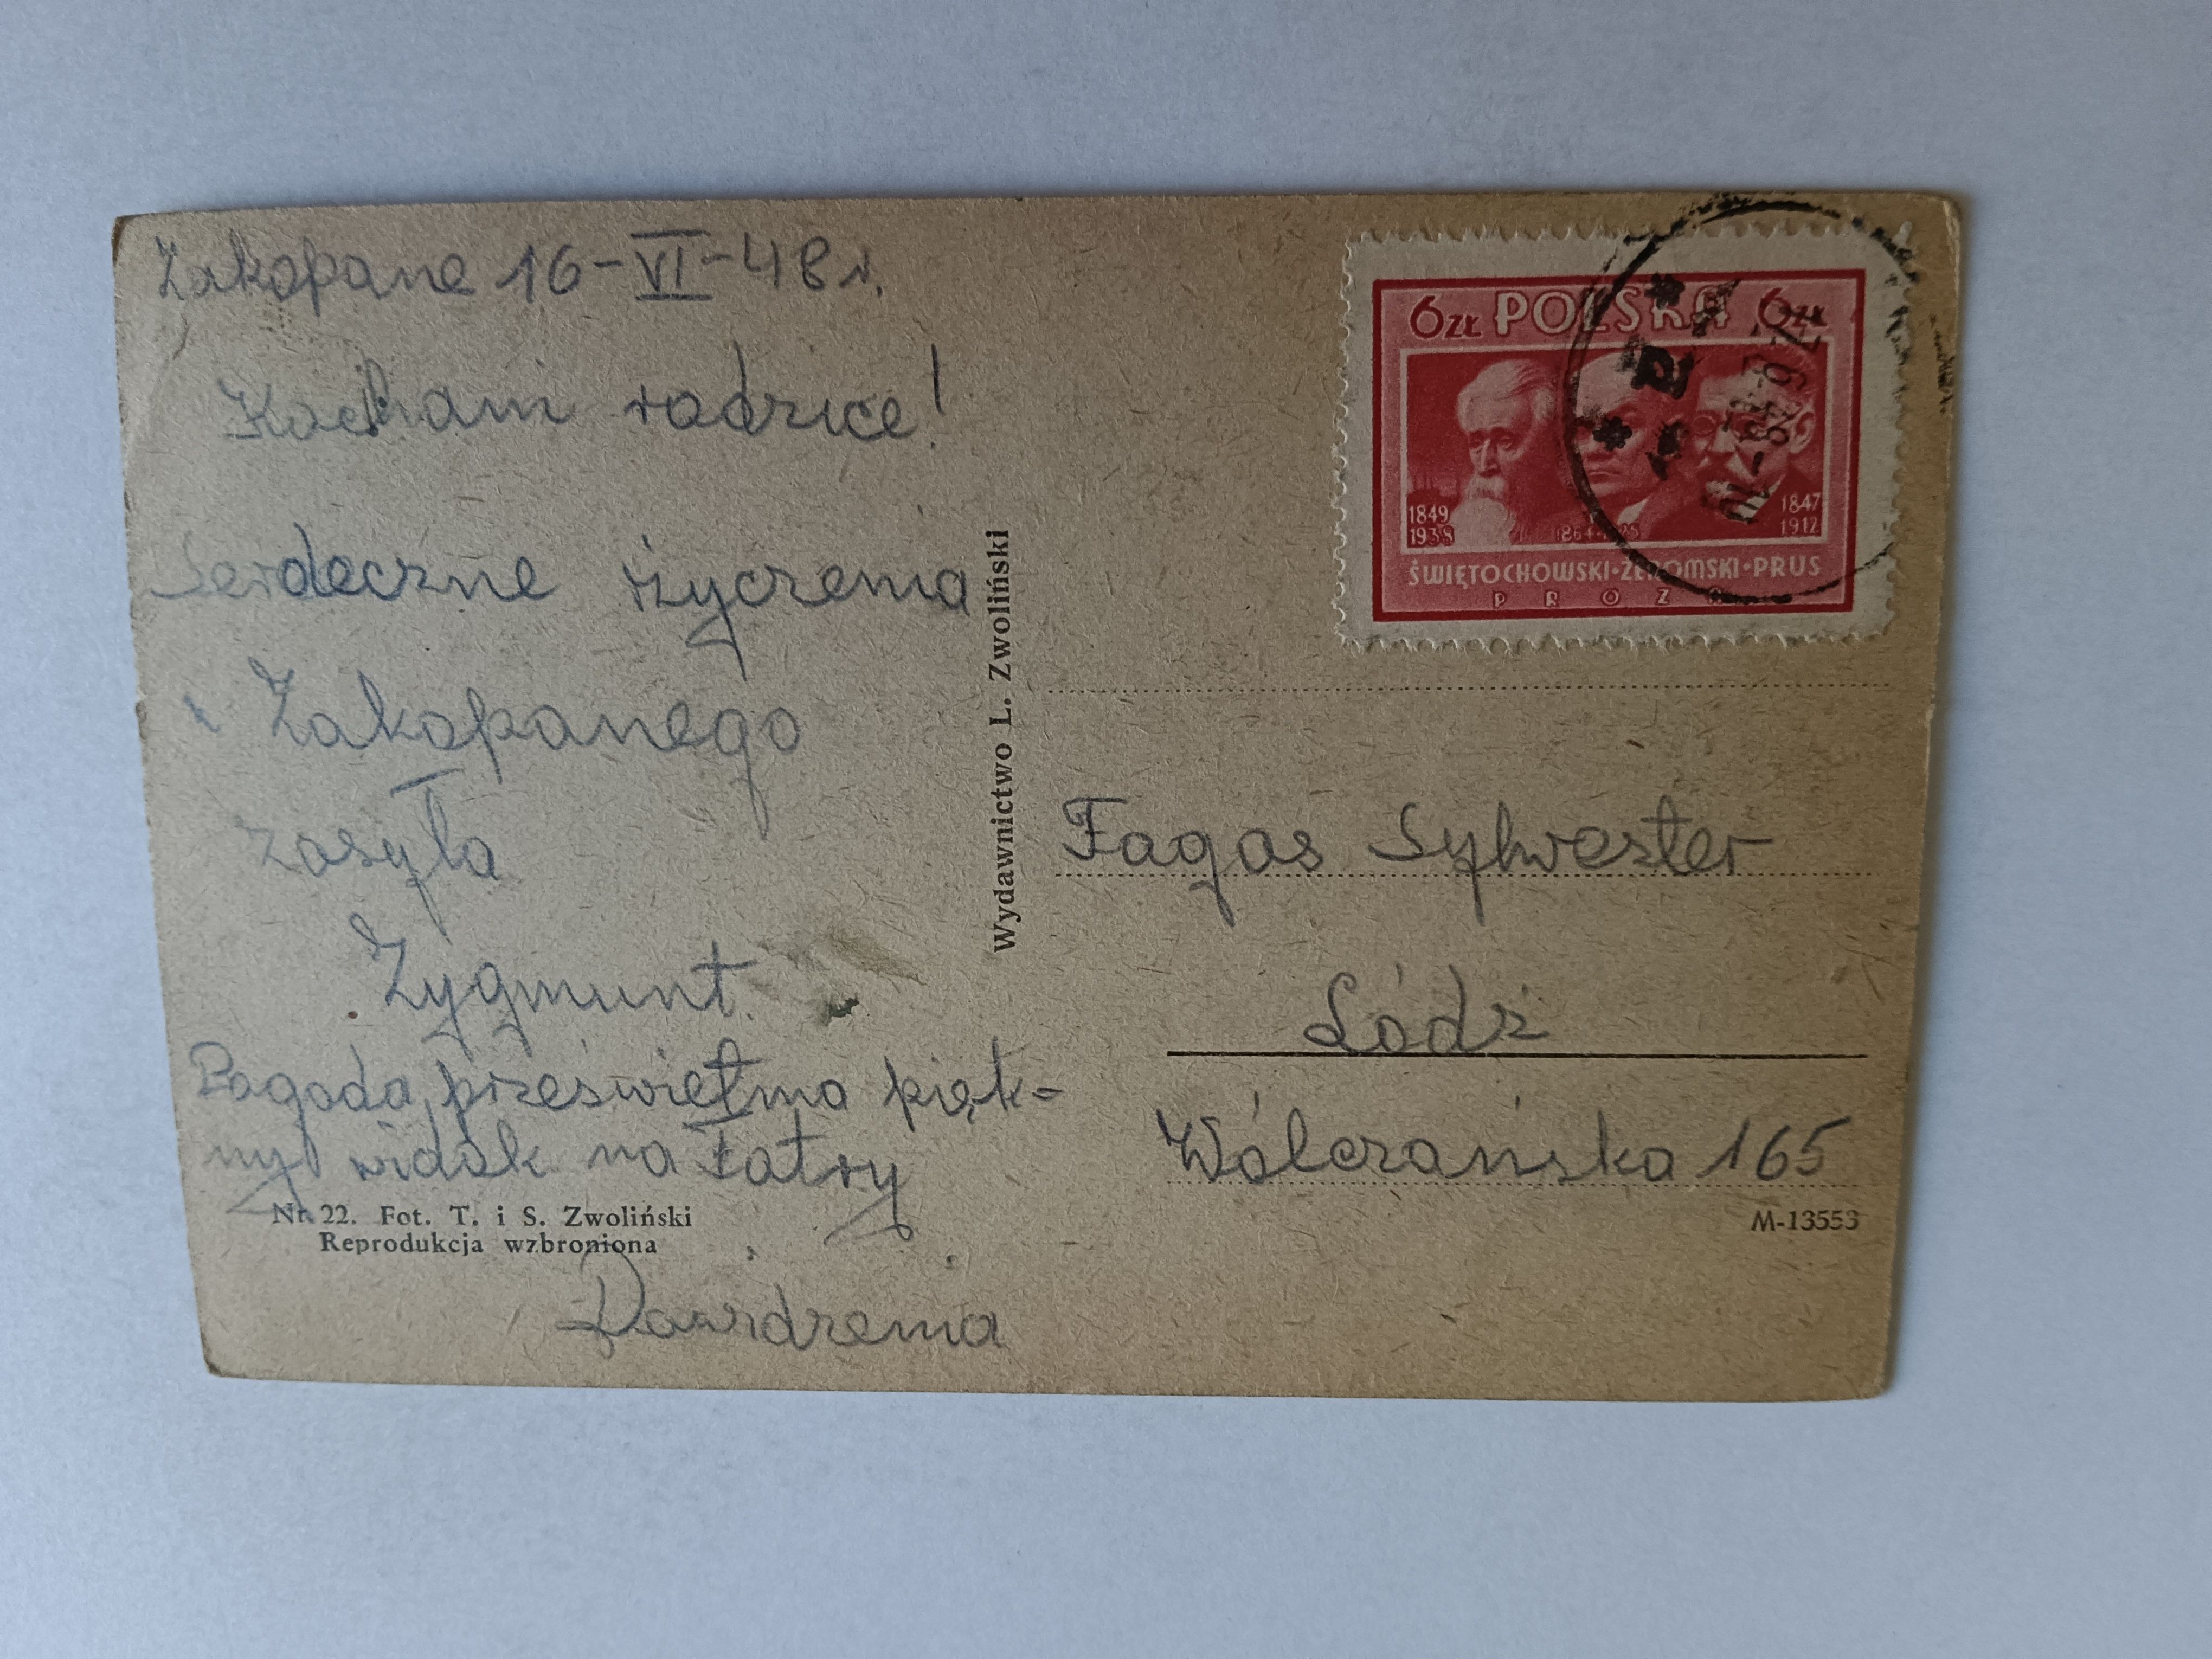 Zakopane 16-VI-48 r.
Kochani rodzice!
Serdeczne rzyczenia
z Zakopanego
zasyła
Zygmunt.
Pogoda prześwietna pięk=
ny widok na Tatry
Nr. 22. Fot. T. i S. Zwoliński
Reprodukcja wzbroniona
Wydawnictwo L. Zwoliński
6ZŁ POLSKA 6ZŁ
1849
1938
1864-1925
1847
1912
ŚWIĘTOCHOWSKI·ŻEROMSKI·PRUS
PROZA
17.6.48
Fagas Sylwester
Łódź
Wólczańska 165
M-13553